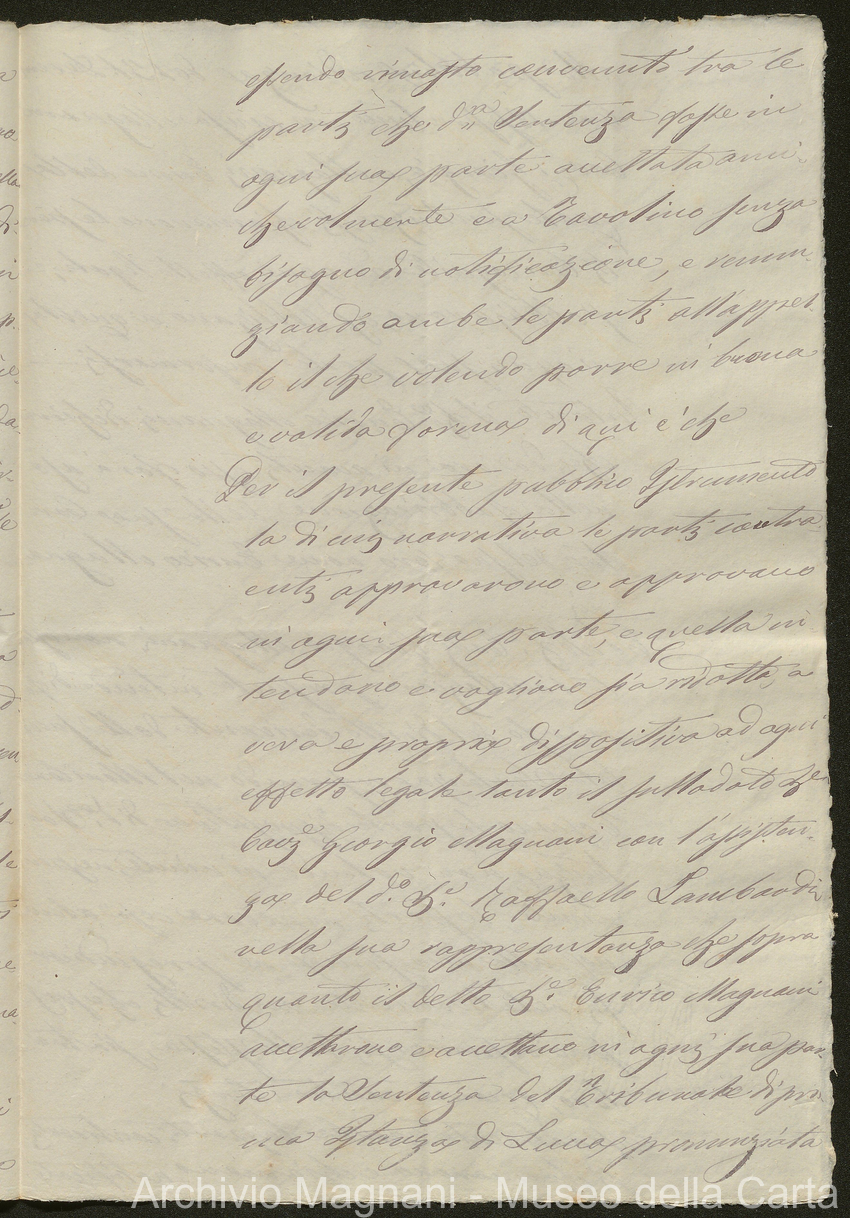 essendo rimasto convenuto tra le
parti che d.ª Sentenza fosse in
ogni sua parte accettata ami-
chevolmente e a Tavolino senza
bisogno di notificazione, e renun-
ziando ambe le parti all'appel-
lo il che volendo porre in buona
e valida forma di qui è che
Per il presente pubblico Istrumento
la di cui narrativa le parti contra-
enti approvarono e approvano
in ogni sua parte, e quella in
tendono e vogliono sia ridotta a
vera e propria dispositiva ad ogni
effetto legale tanto il sullodato Sr
Cav.e Giorgio Magnani con l'assisten-
za del d.o Sr. Raffaello Lambardi
nella sua rappresentanza che sopra
quanto il detto Sr. Enrico Magnani
accettarono e accettano in ogni sua par-
te la Sentenza del Tribunale di pri-
ma Istanza di Lucca pronunziata
Archivio Magnani - Museo della Carta